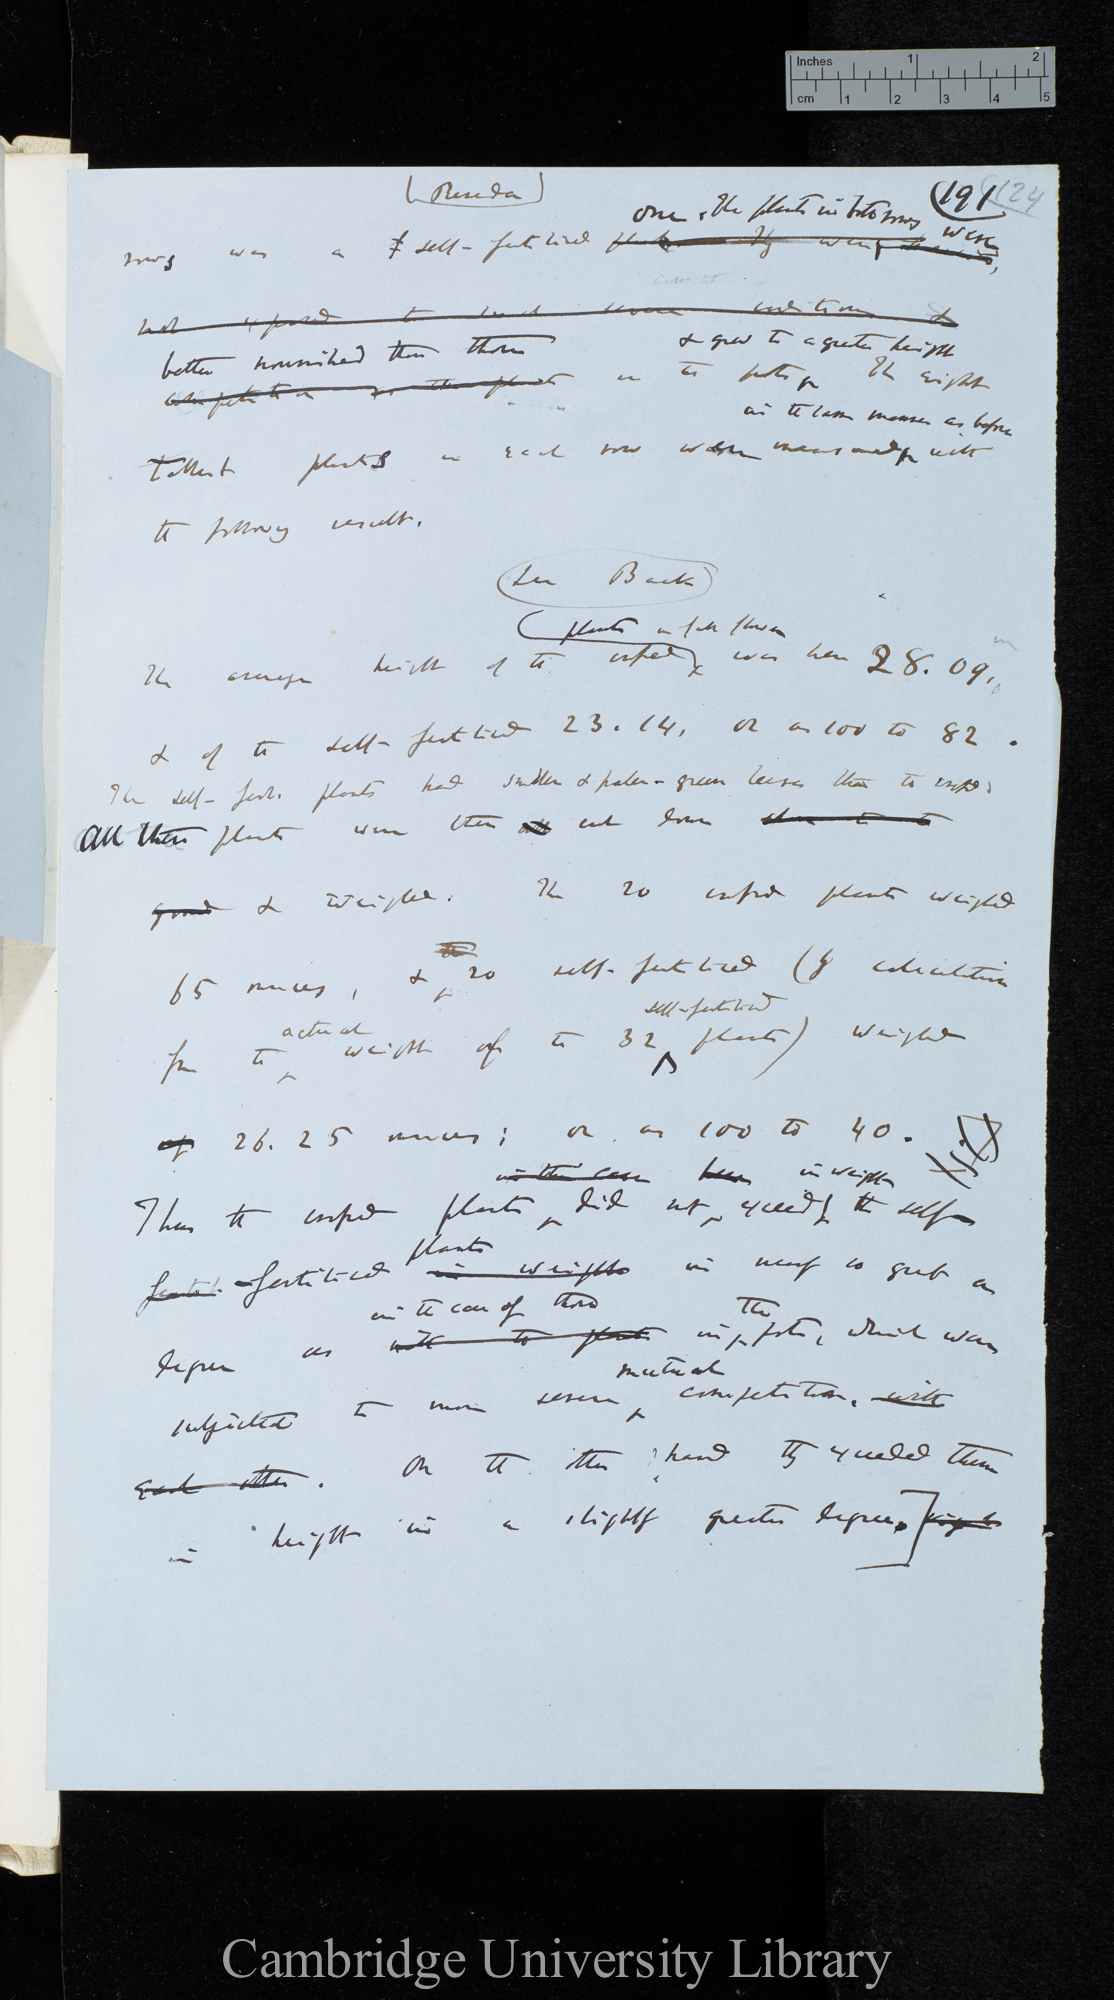 Inches 1 2
cm 1 2 3 4 5
(Reseda)
(191 124
one, the plants in both rows were
rows was a self-fertilised
not exposed to such severe conditions &
better nourished than those & grew to a greater height
competition as the plants in the pots. The eight
in the same manner as before
tallest plants in each row were measured, with
the following result.
(See Back)
plants in full flower
The average height of the crossed was here 28.09,
& of the self-fertilised 23.14, or as 100 to 82.
The self-fert. plants had smaller & paler-green leaves than the crossed
All these plants were then cut down close to the
ground & weighed. The 20 crossed plants weighed
65 ounces, & 20 self-fertilised (by calculation
self-fertilised
actual
from the weight of the 32 plants) weighed
of 26.25 ounces; or as 100 to 40.
in this case been in weight
Thus the crossed plants did not exceed the self-
plants
-fertilised in weight in nearly so great a
in the case of those the
degree as with the plants in pots, which were
mutual
subjected to more severe competition, with
each other. On the other hand they exceeded them
in height in a slightly greater degree.]
Cambridge University Library